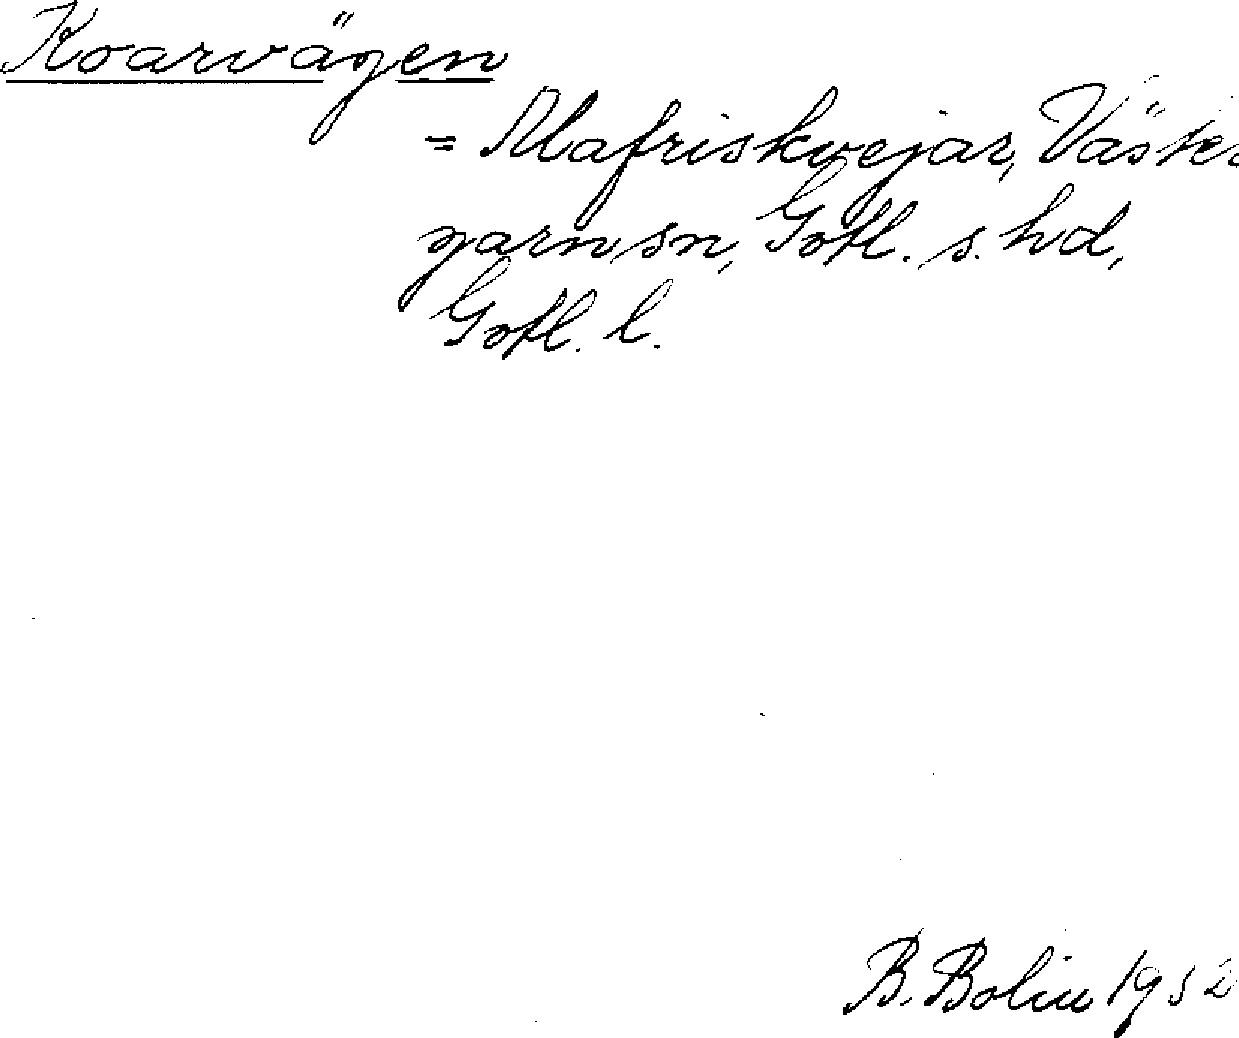 Koarvägen
= Alafriskvejar, Väster
garn sn, Gotl. s. hd,
Gotl. l.
B. Bolin 1952